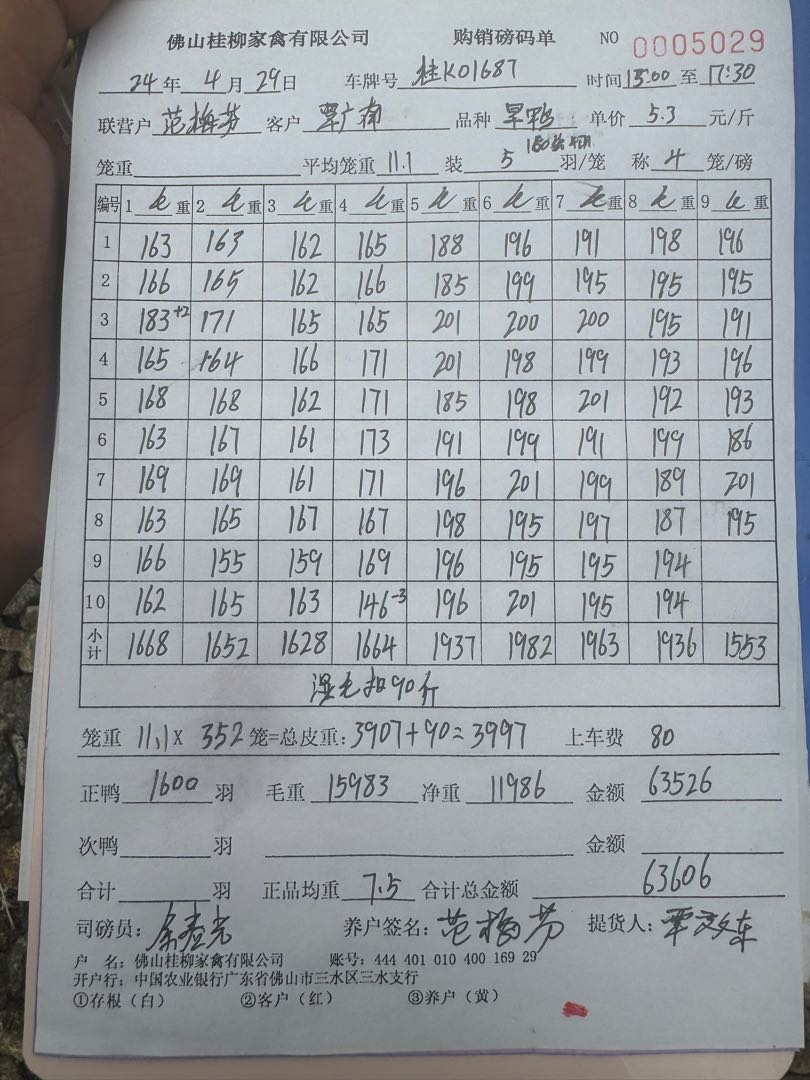 佛山桂柳家禽有限公司 购销磅码单 NO 0005029
24年4月29日 车牌号 桂K01687 时间15:00至17:30
联营户 范梅芬 客户 覃广南 品种 旱鸭 单价 5.3 元/斤
笼重 平均笼重 11.1 装 5 羽/笼 称 4 笼/磅
编号 1 毛重 2 毛重 3 毛重 4 毛重 5 毛重 6 毛重 7 毛重 8 毛重 9 毛重
1 163 163 162 165 188 196 191 198 196
2 166 165 162 166 185 199 195 195 195
3 183+2 171 165 165 201 200 200 195 191
4 165 164 166 171 201 198 199 193 196
5 168 168 162 171 185 198 201 192 193
6 163 167 161 173 191 199 191 199 186
7 169 169 161 171 196 201 199 189 201
8 163 165 167 167 198 195 197 187 195
9 166 155 159 169 196 195 195 194
10 162 165 163 146-3 196 201 195 194
小计 1668 1652 1628 1664 1937 1982 1963 1936 1553
湿毛扣90斤
笼重 11.1× 352 笼=总皮重:3907+90=3997 上车费 80
正鸭 1600 羽 毛重 15983 净重 11986 金额 63526
次鸭 羽 金额
合计 羽 正品均重 7.5 合计总金额 63606
司磅员: 养户签名:范梅芬 提货人:
户 名:佛山桂柳家禽有限公司 账号:444 401 010 400 169 29
开户行:中国农业银行广东省佛山市三水区三水支行
①存根(白) ②客户(红) ③养户(黄)